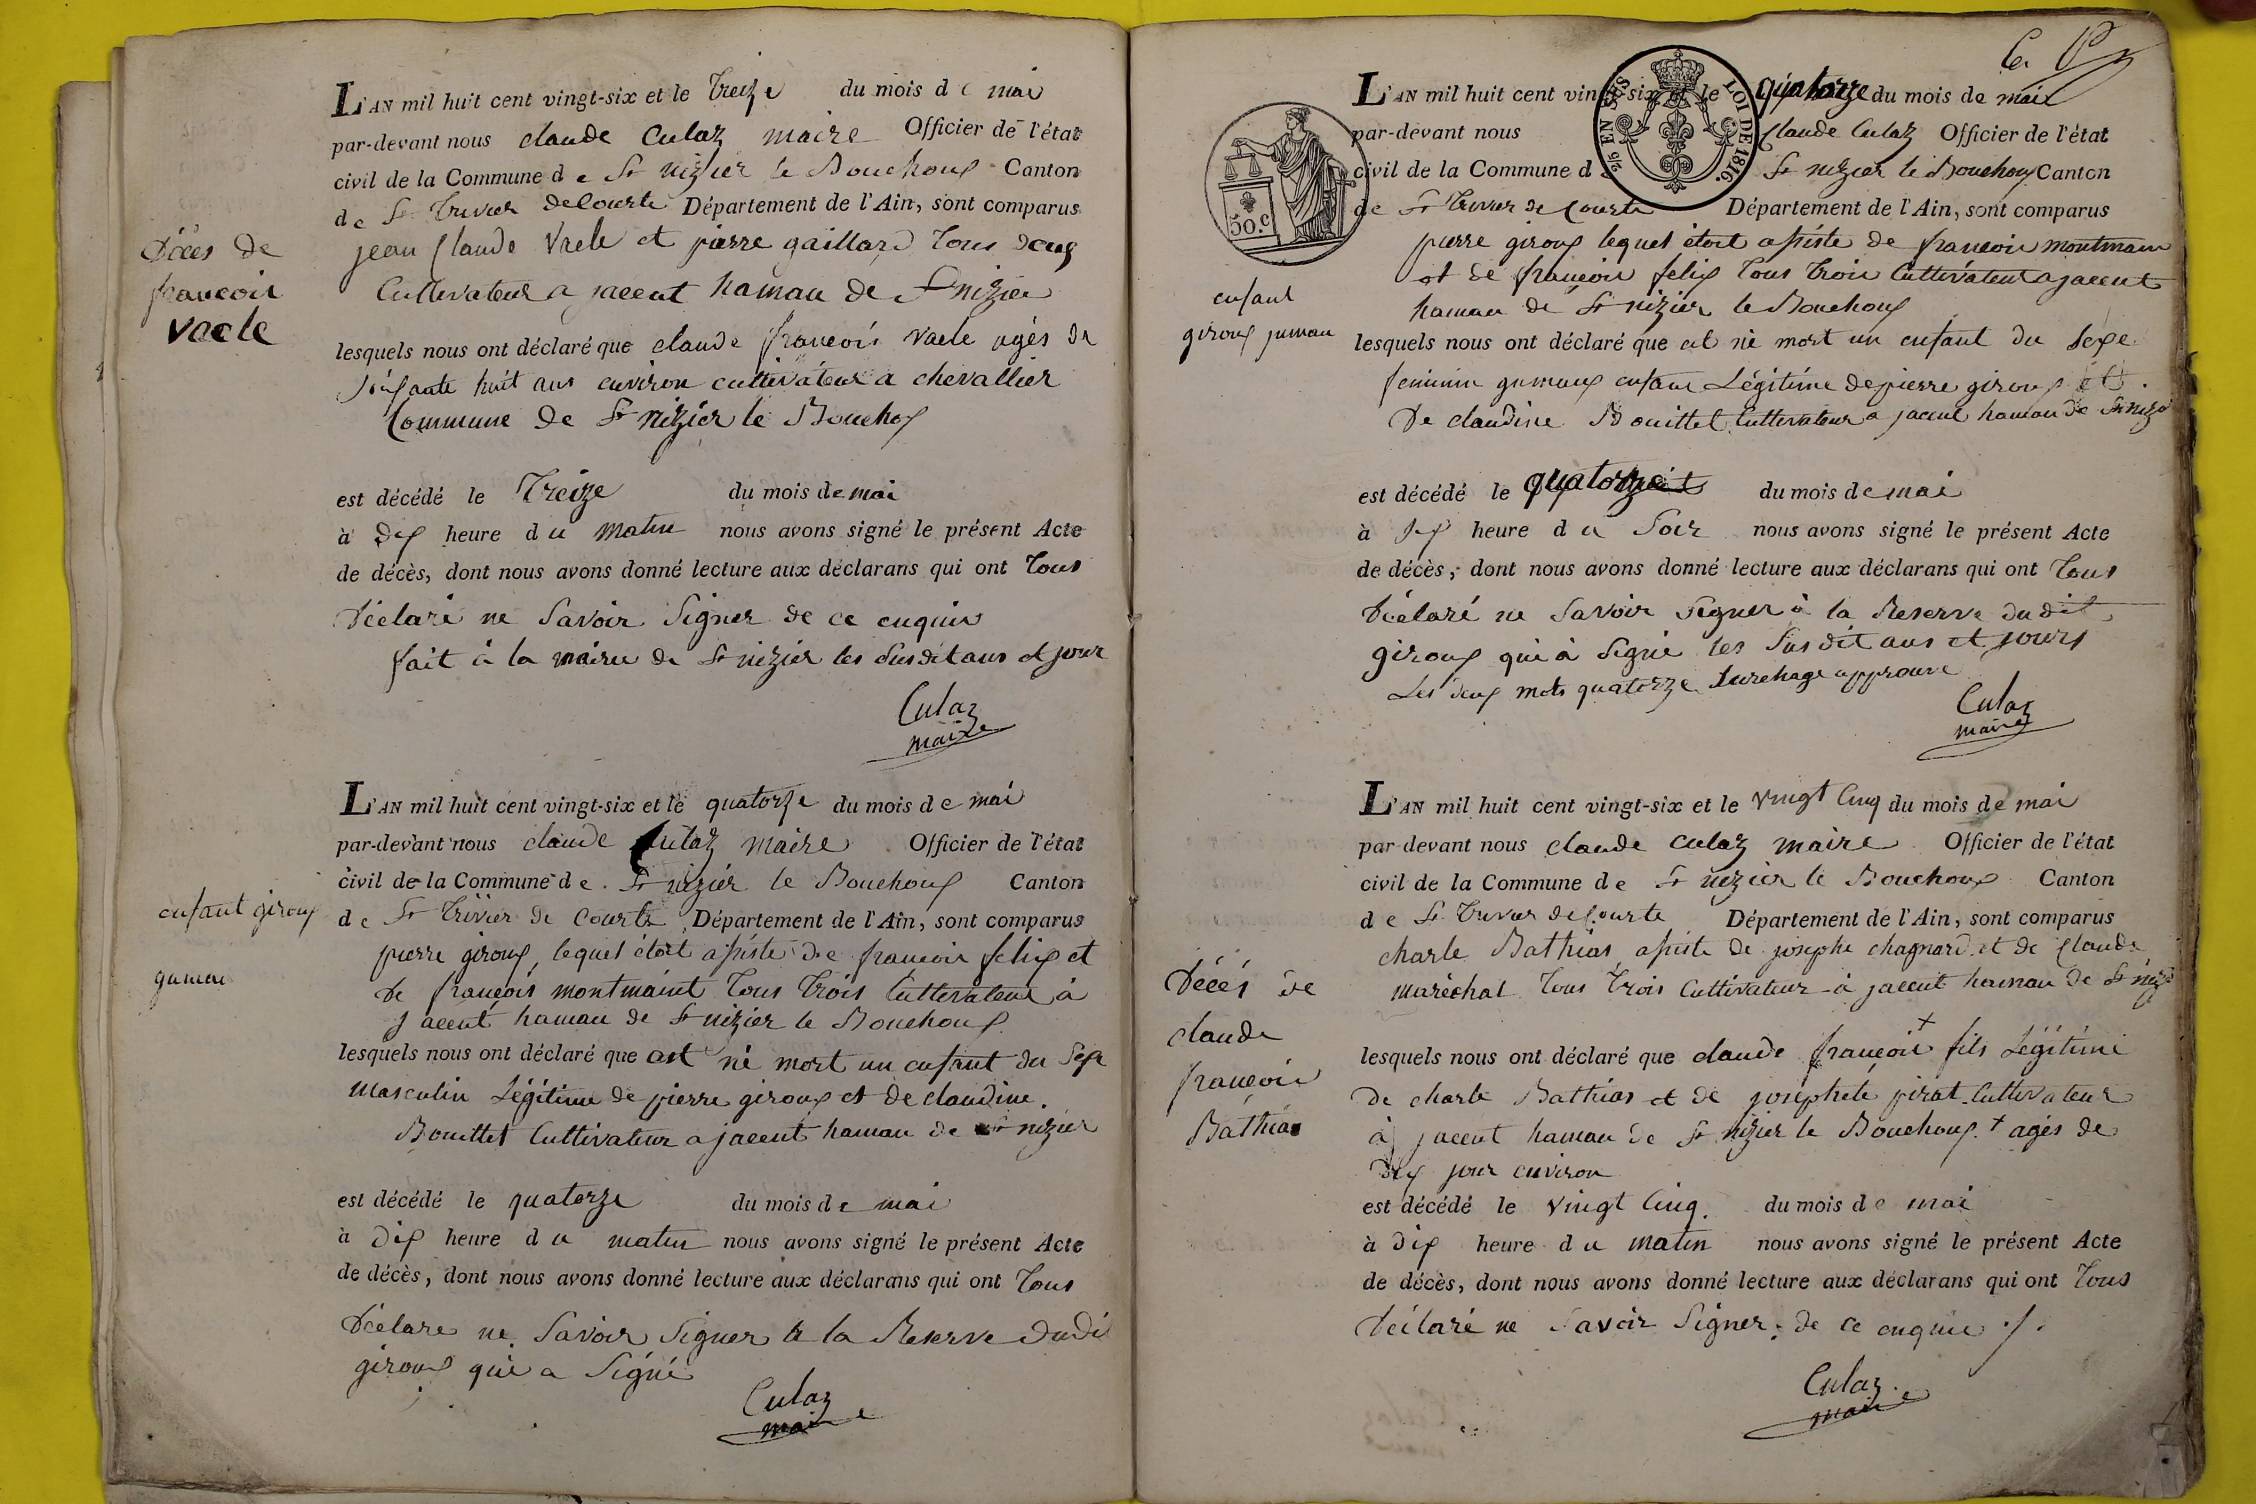 L'AN mil huit cent vingt-six et le treize du mois de mai
par-devant nous claude Culaz maire Officier de l'état
civil de la Commune de St nizier le Bouchoux Canton
de St Trivier de Courte Département de l'Ain, sont comparus
jean Claude Vacle et pierre gaillard tous deux
Cultivateur a jacent hamau de St nizier
Décès de
francois
Vacle
lesquels nous ont déclaré que claude françois Vacle agés de
soixante huit ans environ cultivateur a chevallier
Commune de St nizier le Bouchox
est décédé le Treize du mois de mai
à dix heure du matin nous avons signé le présent Acte
de décès, dont nous avons donné lecture aux déclarans qui ont tous
déclaré ne savoir signer de ce enquis
fait à la mairie de St nizier les susdit ans et jour
Culaz
maire
L'AN mil huit cent vingt-six et le quatorze du mois de mai
par-devant nous claude Culaz maire Officier de l'état
civil de la Commune de St nizier le Bouchoux Canton
de St Trivier de Courte Département de l'Ain, sont comparus
enfant giroux
gumau
pierre giroux, lequel étoit assisté de francois felix et
de françois montmaint tous trois Cultivateur à
jacent hamau de St nizier le Bouchoux
lesquels nous ont déclaré que est né mort un enfant du sexe
masculin Légitime de pierre giroux et de claudine
Bouittet Cultivateur a jacent hamau de St nizier
est décédé le quatorze du mois de mai
à dix heure du matin nous avons signé le présent Acte
de décès, dont nous avons donné lecture aux déclarans qui ont tous
déclare ne savoir signer à la Reserve dudi
giroux qui a signé
Culaz
maire
L'AN mil huit cent vingt-six et le quatorze du mois de mai
par-devant nous Claude Culaz Officier de l'état
civil de la Commune d St nizier le Bouchoux Canton
de St Trivier de Courte Département de l'Ain, sont comparus
2/5 EN SUS
LOI DE 1816.
50.c
pierre giroux lequel étoit assisté de francois montmain
et de françois felix tous trois Cultivateur a jacent
hamau de St nizier le Bouchoux
enfant
giroux jumau
lesquels nous ont déclaré que est né mort un enfant du sexe
feminin gumaux enfant Légitime de pierre giroux et
de claudine Bouittet Cultivateur a jacent hamau de St nizi
est décédé le quatorze du mois de mai
à six heure du soir nous avons signé le présent Acte
de décès, dont nous avons donné lecture aux déclarans qui ont tous
déclaré ne savoir signer à la Reserve dudit
giroux qui à signé les susdit ans et jours
Les deux mots quatorze surchagé approuvé
Culaz
maire
L'AN mil huit cent vingt-six et le vingt Cinq du mois de mai
par-devant nous claude culaz maire Officier de l'état
civil de la Commune de St nizier le Bouchoux Canton
de St Trivier de Courte Département de l'Ain, sont comparus
charle Bathias assisté de josephe chagnard et de Claude
maréchal tous trois Cultivateur à jacent hamau de St nizi
Décés de
claude
françois
Bathias
lesquels nous ont déclaré que claude françois + fils Légitime
de charle Bathias et de josephete pirat Cultivateur
à jacent hamau de St nizier le Bouchoux + agés de
dix jour environ
est décédé le vingt Cinq du mois de mai
à dix heure du matin nous avons signé le présent Acte
de décès, dont nous avons donné lecture aux déclarans qui ont tous
déclaré ne savoir signer de ce enquis
Culaz
maire